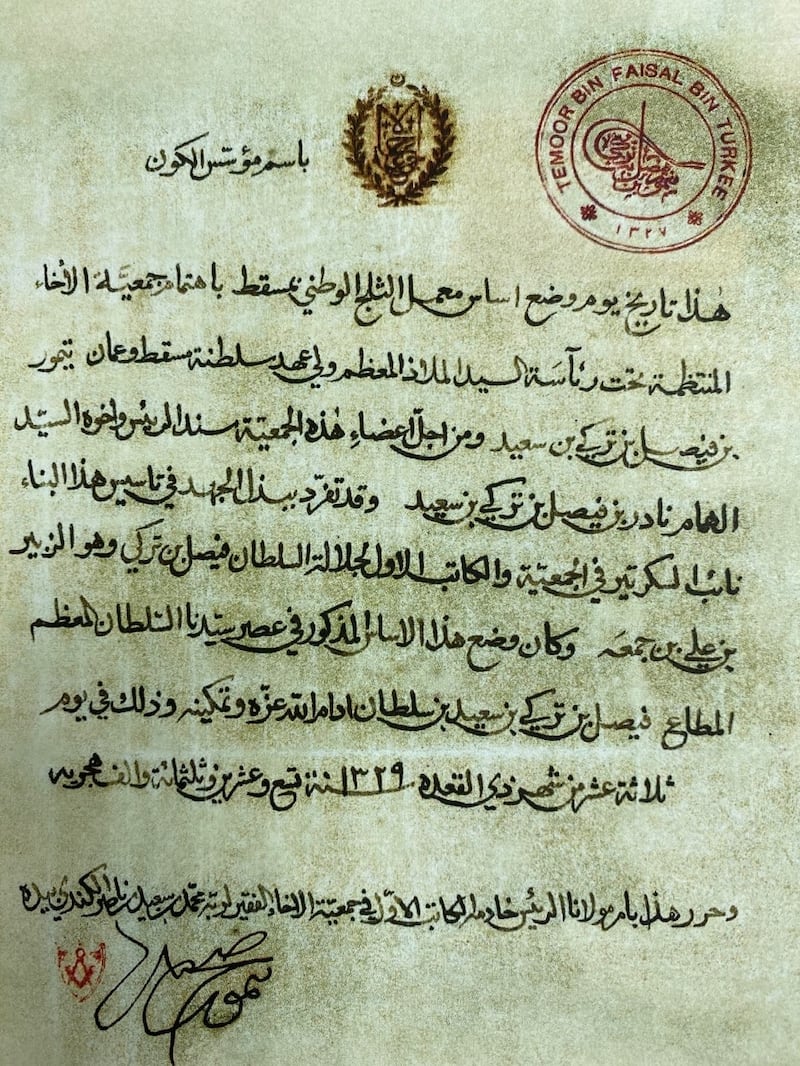 باسم مؤسس الكون
TEMOOR BIN FAISAL BIN TURKEE
١٣٢٧
هذا تاريخ يوم وضع اساس معمل الثلج الوطني بمسقط باهتمام جمعيّة الأخاء
المنتظمة تحت رئآسة السيد الملاذ المعظم ولي عهد سلطنة مسقط وعمان تيمور
بن فيصل بن تركي بن سعيد ومن اجلّ اعضاءِ هذه الجمعيّة سند الرئيس واخوه السيّد
الهمام نادر بن فيصل بن تركي بن سعيد وقد تفرّد ببذل الجهد في تاسيس هذا البناء
نائب السكرتير في الجمعيّة والكاتب الاول لجلالة السلطان فيصل بن تركي وهو الزبير
بن علي بن جمعه وكان وضع هذا الاساس المذكور في عصر سيّدنا السّلطان المعظم
المطاع فيصل بن تركي بن سعيد بن سلطان ادام الله عزّه وتمكينه وذلك في يوم
ثلاثة عشر من شهر ذي القعده ١٣٢٩ سنة تسع وعشرين وثلثمائة والف هجريه
وحرر هذا بامر مولانا الرئيس خادمه الكاتب الاوّل في جمعيّة الاخاء الفقير لربه محمد بن سعيد بن ناصر الكندي بيده
صحيح
تيمور